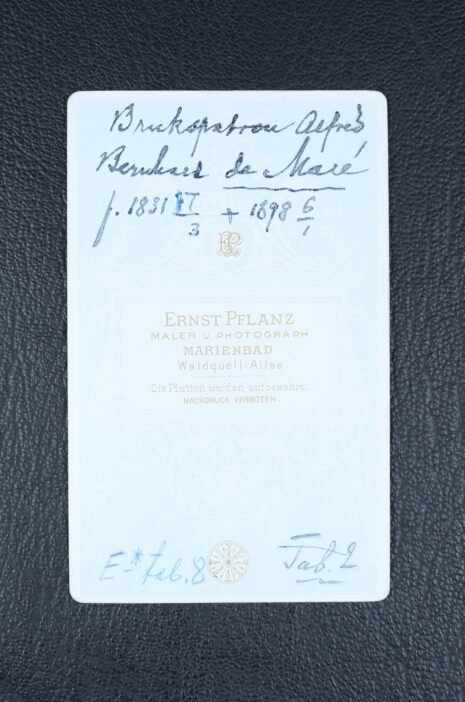 Brukspatron Alfred
Bernhard de Maré
f. 1831 17/3 + 1898 6/1
EP
ERNST PFLANZ
MALER U. PHOTOGRAPH
MARIENBAD
Waldquell-Allee
Die Platten werden aufbewahrt.
NACHDRUCK VERBOTEN
E-* tab. 8
Tab. 2